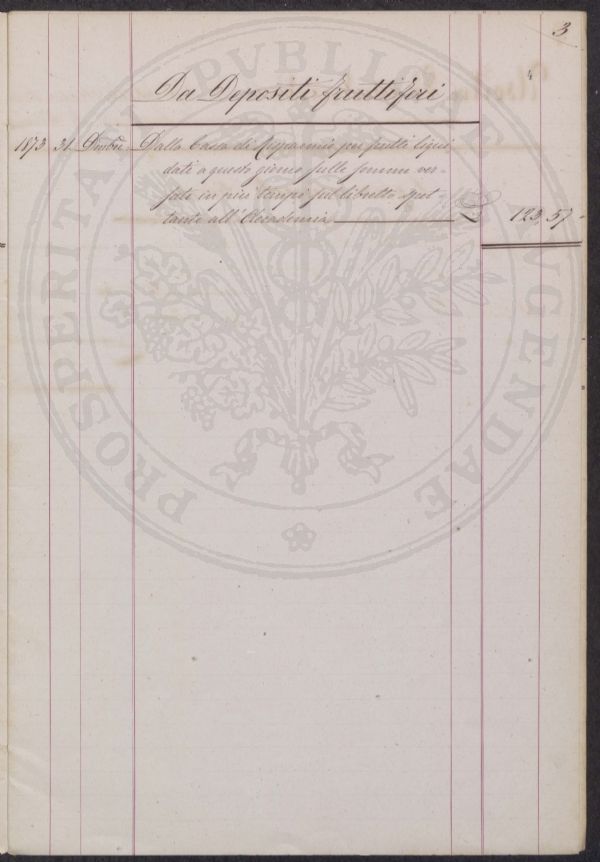 3
Da Depositi fruttiferi
1873 31 Dmbre Dalla Cassa di Risparmio per frutti liqui
dati a questo giorno sulle somme ver-
sate in più tempi sul libretto spet-
tante all'Accademia £ 123,57
PROSPERITATI PVBLICAE AVGENDAE